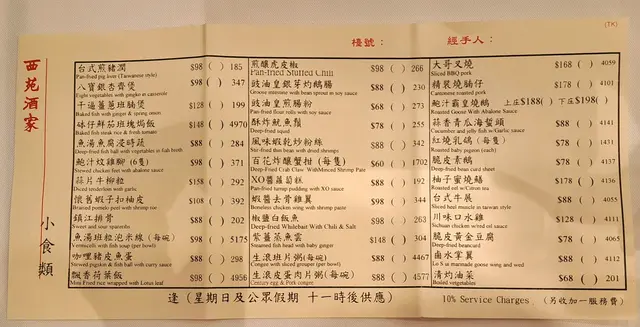 (TK)
西苑酒家
小食類
檯號：
經手人：
台式煎豬潤 $98 ( ) 185
Pan-fried pig liver (Taiwanese style)
八寶銀杏齊煲 $98 ( ) 347
Eight vegetables with gingko in casserole
干逼薑蔥班腩煲 $128 ( ) 199
Baked fish with ginger & spring onion
味仔鮮茄班塊焗飯 $148 ( ) 4970
Baked fish steak rice & fresh tomato
魚湯魚腐浸時蔬 $88 ( ) 284
Deep-fried fish ball with vegetables in fish broth
鮑汁炆雞腳 (6隻) $98 ( ) 371
Stewed chicken feet with abalone sauce
蒜片牛柳粒 $158 ( ) 292
Diced tenderloin with garlic
懷舊蝦子扣柚皮 $108 ( ) 392
Braised pomelo peel with shrimp roe
鎮江排骨 $88 ( ) 202
Sweet and sour spareribs
魚湯班粒泡米線 (每碗) $98 ( ) 5175
Vermicelli with fish soup (per bowl)
咖哩豬皮魚蛋 $88 ( ) 298
Stewed pigskin & fish ball with curry sauce
飄香荷葉飯 $98 ( ) 4956
Mini Fried rice wrapped with Lotus leaf
煎釀虎皮椒 $98 ( ) 266
Pan-fried Stuffed Chili
豉油皇銀芽灼鵝腸 $88 ( ) 230
Goose intestine with bean sprout in soy sauce
豉油皇煎腸粉 $68 ( ) 273
Pan-fried flour rolls with soy sauce
酥炸魷魚鬚 $78 ( ) 255
Deep-fried squid
風味蝦乾炒粉絲 $88 ( ) 342
Stir-fried thin bean with dried shrimps
百花炸釀蟹拑 (每隻) $60 ( ) 1702
Deep-fried Crab Claw WithMinced Shrimp Paste
XO醬蘿蔔糕 $88 ( ) 192
Pan-fried turnip pudding with XO sauce
蝦醬去骨雞翼 $98 ( ) 344
Boneless chicken wing with shrimp paste
椒鹽白飯魚 $98 ( ) 263
Deep-fried Whitebait With Chili & Salt
紫薑蒸魚雲 $148 ( ) 304
Steamed fish head with baby ginger
生滾班片粥(每碗) $88 ( ) 4467
Congee with sliced grouper (per bowl)
生滾皮蛋肉片粥(每碗) $88 ( ) 4577
Century egg & Pork congee
大哥叉燒 $168 ( ) 4059
Sliced BBQ pork
精裝燒腩仔 $178 ( ) 4101
Cantonese roasted pork
鮑汁霸皇燒鵝 上庄$188( ) 下庄$198( )
Roasted Goose With Abalone Sauce
蒜香青瓜海蜇頭 $88 ( ) 4141
Cucumber and jelly fish w/Garlic sauce
紅燒乳鴿 (每隻) $78 ( ) 4131
Roasted baby pigeon (each)
脆皮素鵝 $78 ( ) 4137
Deep-fried bean curd sheet
柚子蜜燒鱔 $178 ( ) 4136
Roasted eel w/Citron tea
台式牛展 $88 ( ) 4055
Sliced beef muscle in taiwan style
川味口水雞 $128 ( ) 4111
Sichuan chicken w/red oil sauce
脆皮黃金豆腐 $78 ( ) 4065
Deep-fried beancurd
鹵水掌翼 $88 ( ) 4112
Lo S in marinade goose wing and wed
清灼油菜 $68 ( ) 201
Boiled vegetables
逢 (星期日及公眾假期 十一時後供應)
10% Service Charges (另收加一服務費)